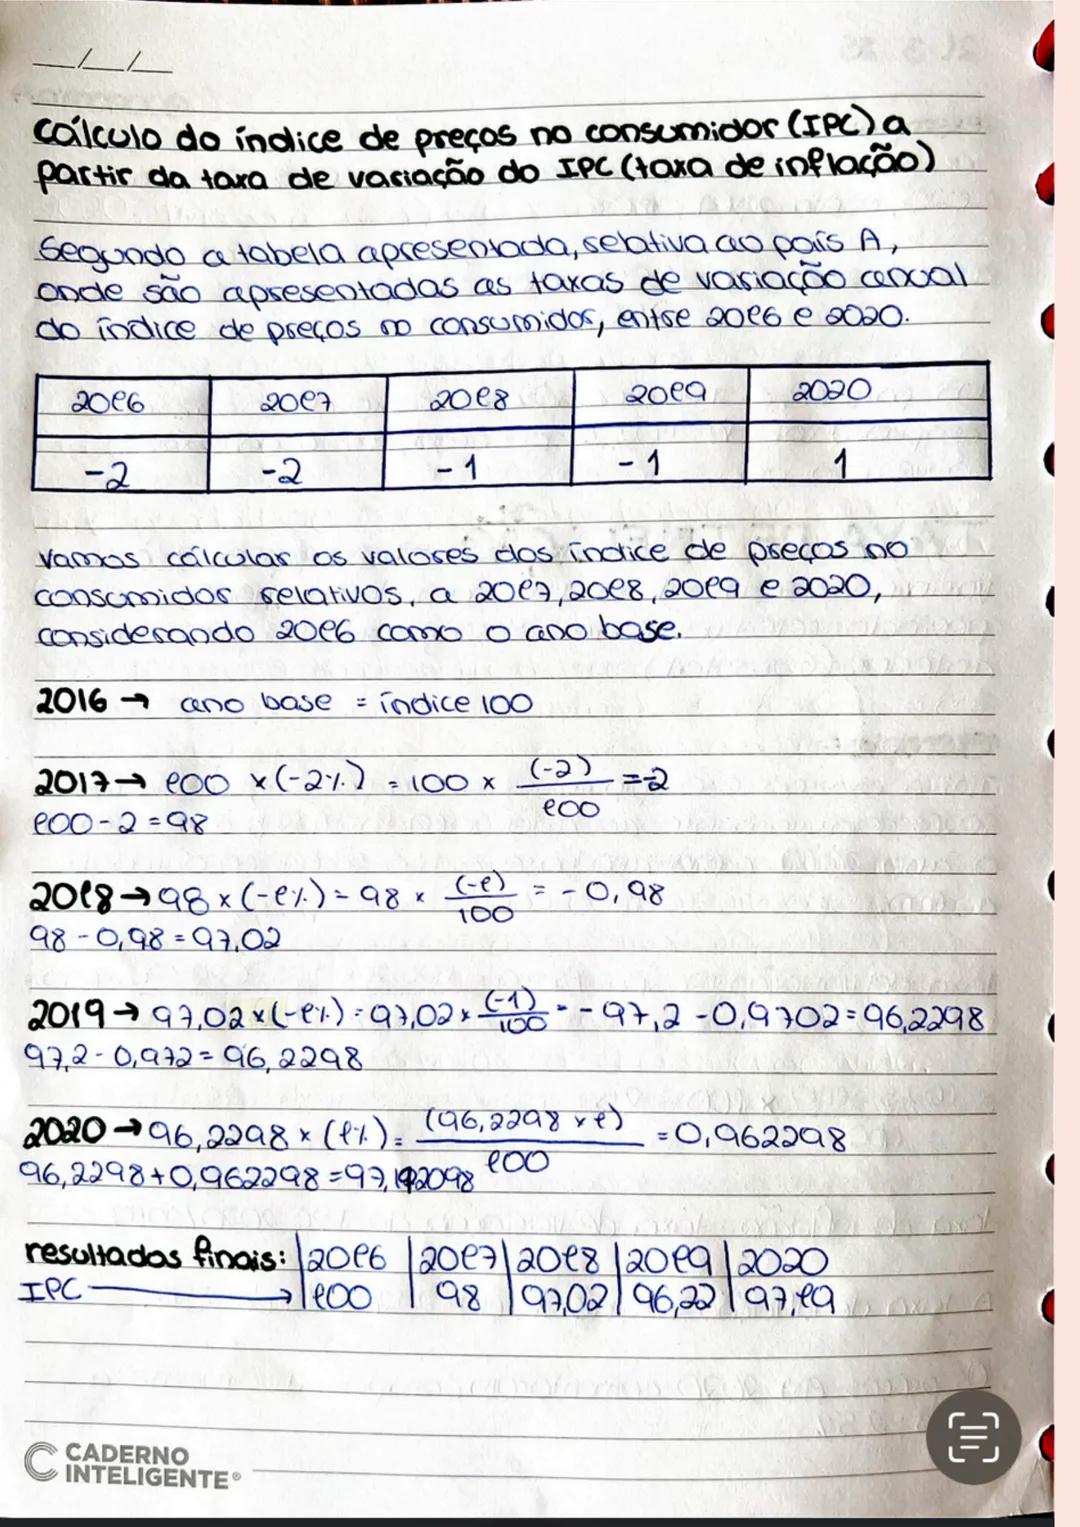 __/__/__
cálculo do índice de preços no consumidor (IPC) a
partir da taxa de variação do IPC (taxa de inflação)
Segundo a tabela apresentada, relativa ao país A,
onde são apresentadas as taxas de variação anual
do índice de preços no consumidor, entre 2016 e 2020.
2016 2017 2018 2019 2020
-2 -2 -1 -1 1
vamos cálcular os valores dos índice de preços no
consumidor relativos, a 2017, 2018, 2019 e 2020,
considerando 2016 como o ano base.
2016 → ano base = índice 100
2017 → 100 × (-2%) = 100 × (-2)/100 = -2
100 - 2 = 98
2018 → 98 × (-1%) = 98 × (-1)/100 = - 0,98
98 - 0,98 = 97,02
2019 → 97,02 × (-1%) = 97,02 × (-1)/100 = - 97,2 - 0,9702 = 96,2298
97,2 - 0,972 = 96,2298
2020 → 96,2298 × (1%) = (96,2298 × 1)/100 = 0,962298
96,2298 + 0,962298 = 97,192098
resultados finais: 2016 2017 2018 2019 2020
IPC → 100 98 97,02 96,22 97,19
CADERNO
INTELIGENTE®